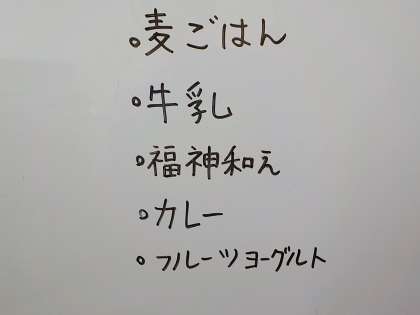 。麦ごはん
。牛乳
。福神和え
。カレー
。フルーツヨーグルト